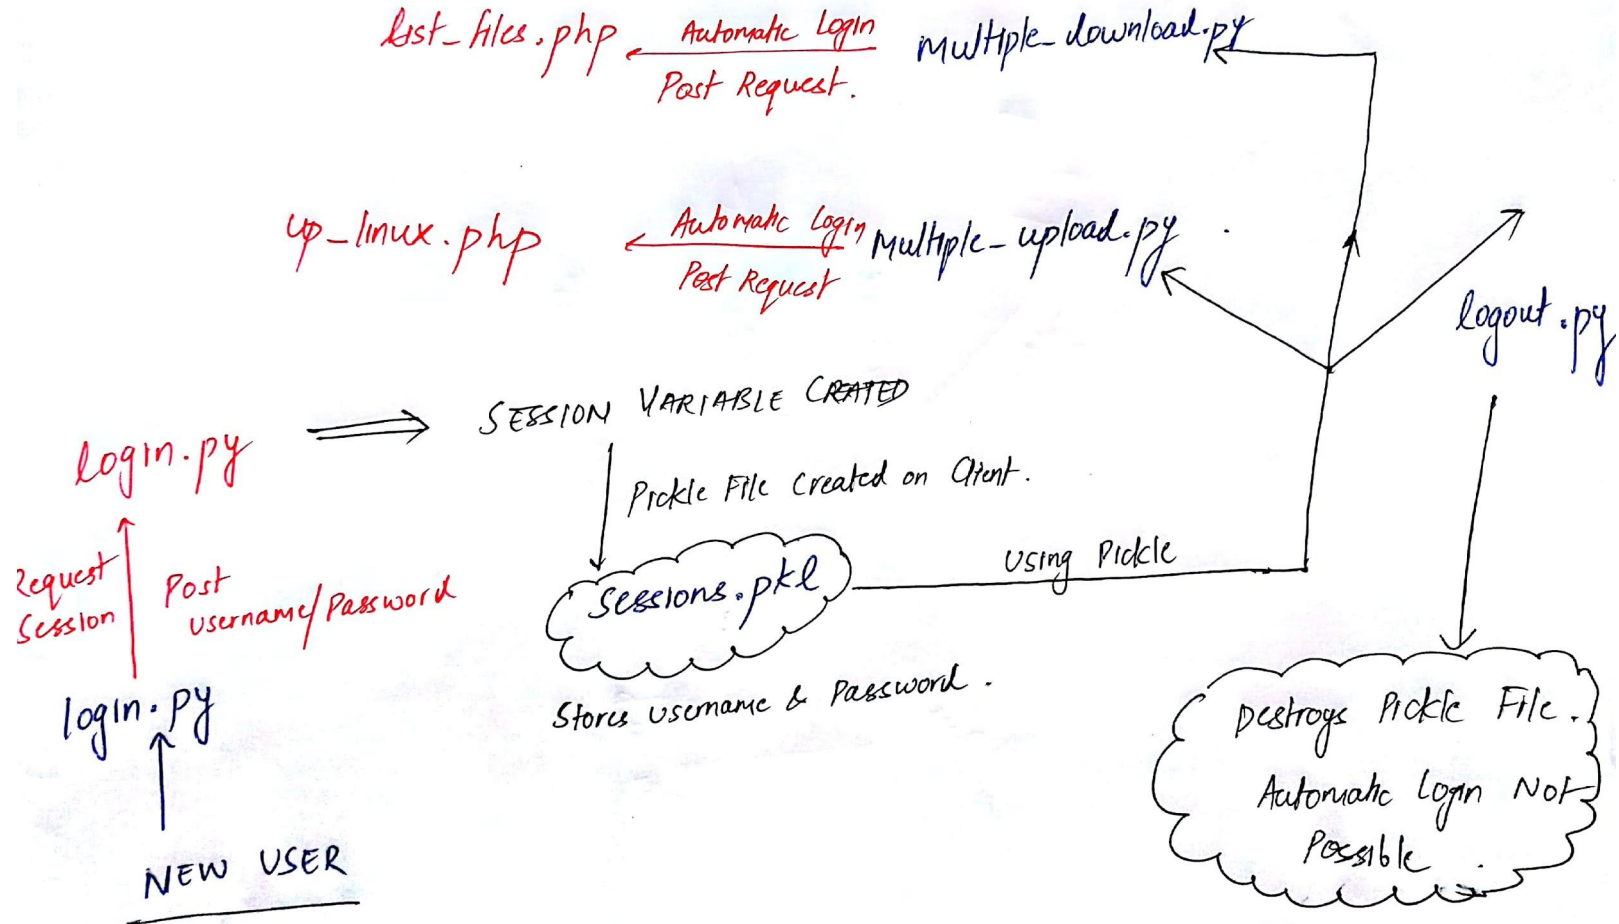 list_files.php
Automatic Login
Post Request.
multiple_download.py
up_linux.php
Automatic Login
Post Request
multiple_upload.py
logout.py
login.py
SESSION VARIABLE CREATED
Pickle File Created on Client.
Request
Session
Post
username/Password
sessions.pkl
Using Pickle
Stores username & Password.
login.py
NEW USER
Destroys Pickle File.
Automatic Login Not
Possible.